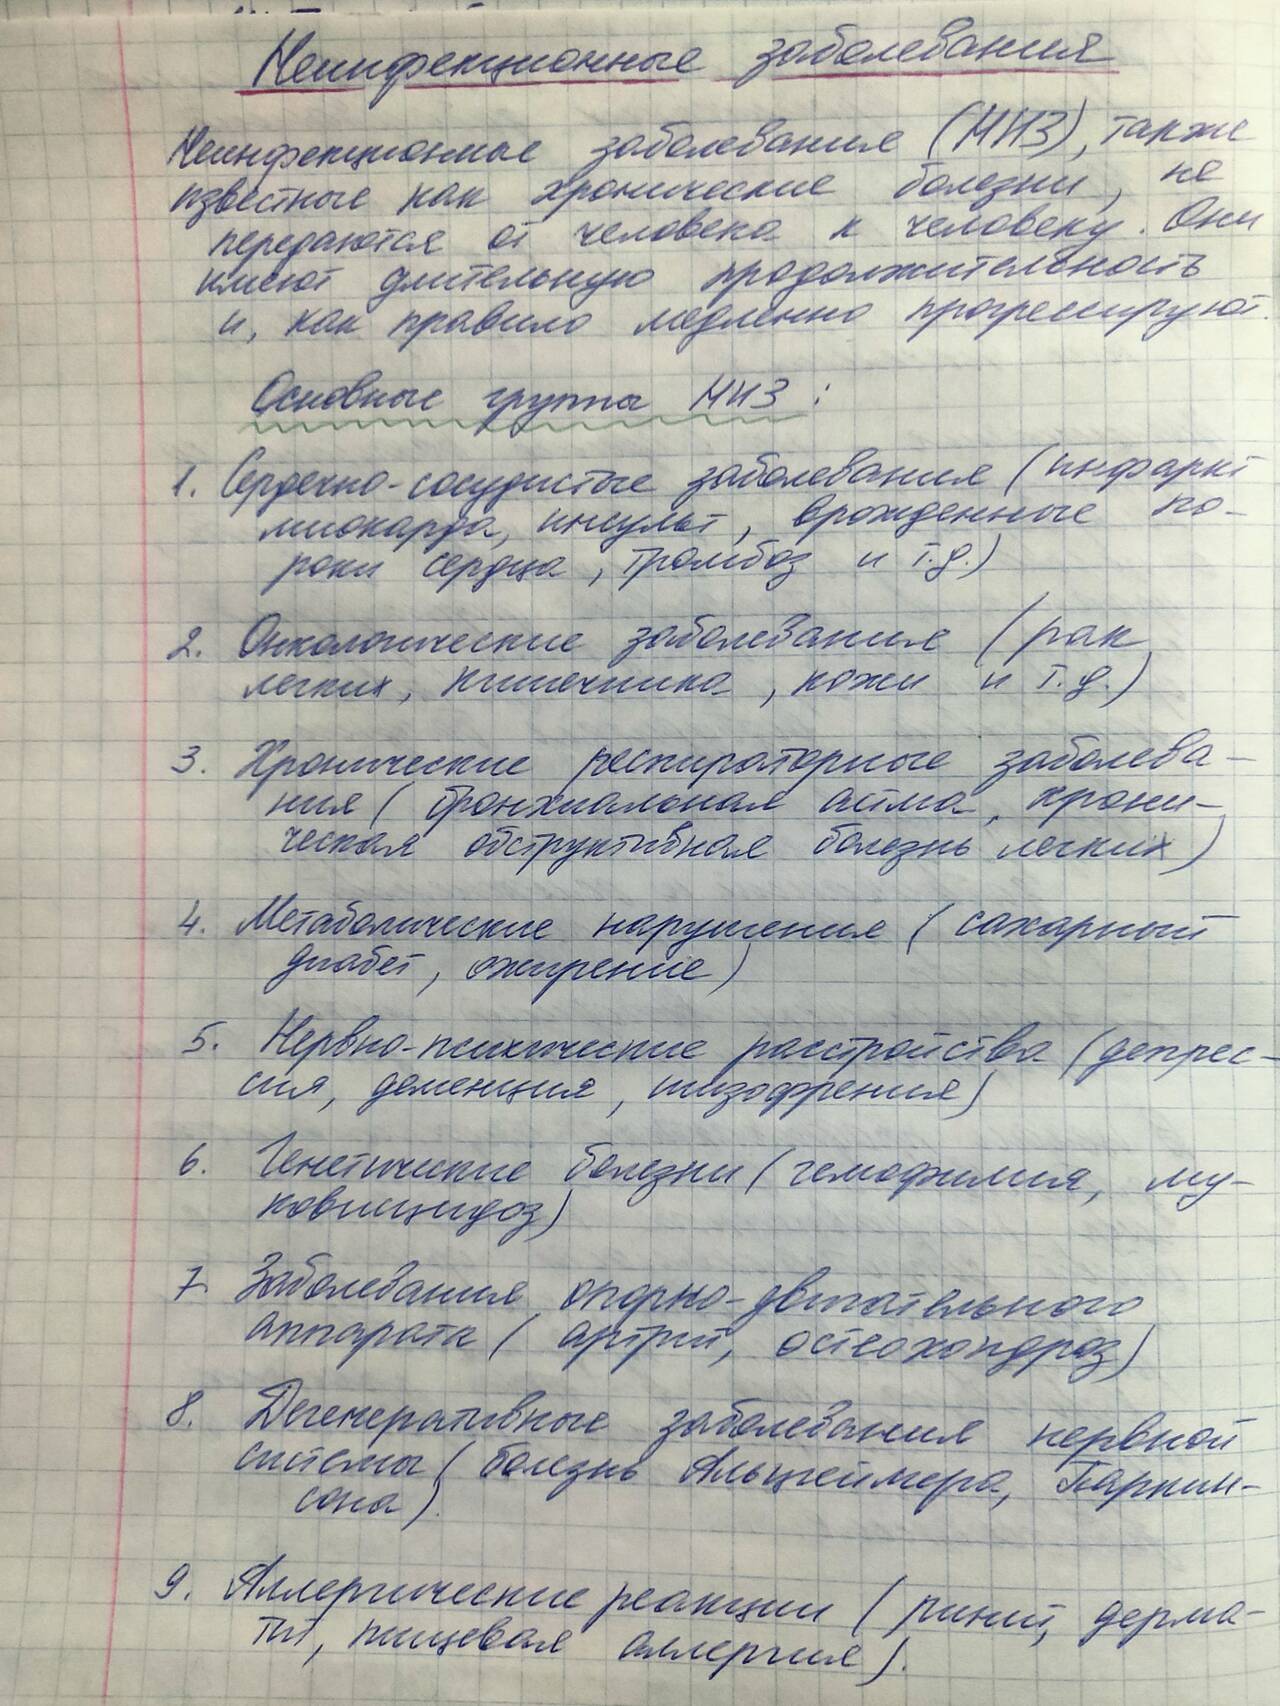 Неинфекционные заболевания
Неинфекционные заболевания (НИЗ), также
известные как хронические болезни, не
передаются от человека к человеку. Они
имеют длительную продолжительность
и, как правило медленно прогрессируют.
Основные группы НИЗ:
1. Сердечно-сосудистые заболевания (инфаркт
миокарда, инсульт, врожденные по-
роки сердца, тромбоз и т.д.)
2. Онкологические заболевания (рак
легких, кишечника, кожи и т.д.)
3. Хронические респираторные заболева-
ния (бронхиальная астма, хрони-
ческая обструктивная болезнь легких)
4. Метаболические нарушения (сахарный
диабет, ожирение)
5. Нервно-психические расстройства (депрес-
сия, деменция, шизофрения)
6. Генетические болезни (гемофилия, му-
ковисцидоз)
7. Заболевания опорно-двигательного
аппарата (артрит, остеохондроз)
8. Дегенеративные заболевания нервной
системы (болезнь Альцгеймера, Паркин-
сона).
9. Аллергические реакции (ринит, дерма-
тит, пищевая аллергия).